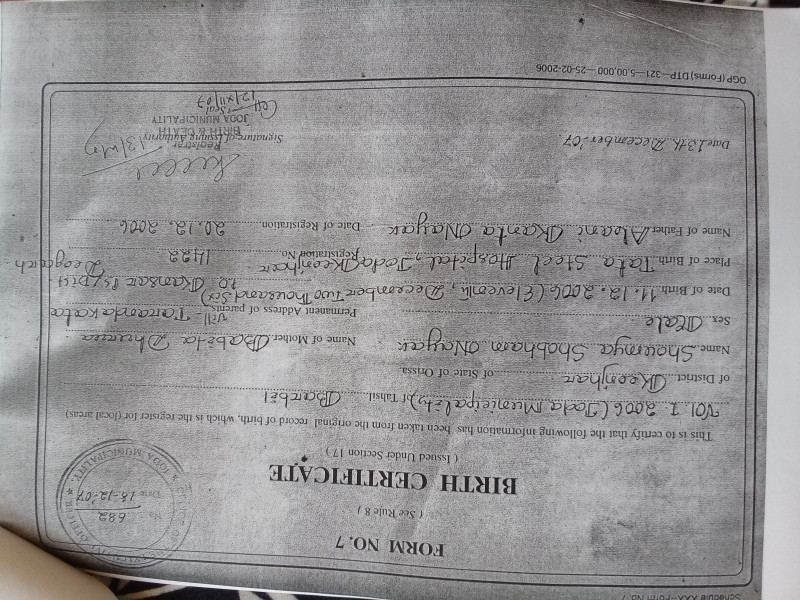 Schedule XXX—Form No. 7
FORM NO. 7
( See Rule 8 )
BIRTH CERTIFICATE
( Issued Under Section 17 )
No. 682
Date 13-12-'07
JODA MUNICIPALITY
This is to certify that the following information has been taken from the original record of birth, which is the register for (local areas)
Vol. 1. 2006 (Joda Municipality) of Tahsil Barbil
of District Keonjhar of State of Orissa.
Name Shoumya Shobham Nayak Name of Mother Babita
Sex Male Permanent Address of parents Vill -
Date of Birth 11.12.2006 (Eleventh, December Two Thousand Six)
P.O. Kansar Ps/Dist Deogarh.
Place of Birth Tata Steel Hospital, Joda, Keonjhar. Registration No. 1422
Name of Father Kanta Nayak Date of Registration 20.12.2006
Date 13th December-'07
Signature of Issuing Authority
Registrar
BIRTH & DEATH
JODA MUNICIPALITY
Seal
OGP (Forms) DTP—321—5,00,000—25-02-2006